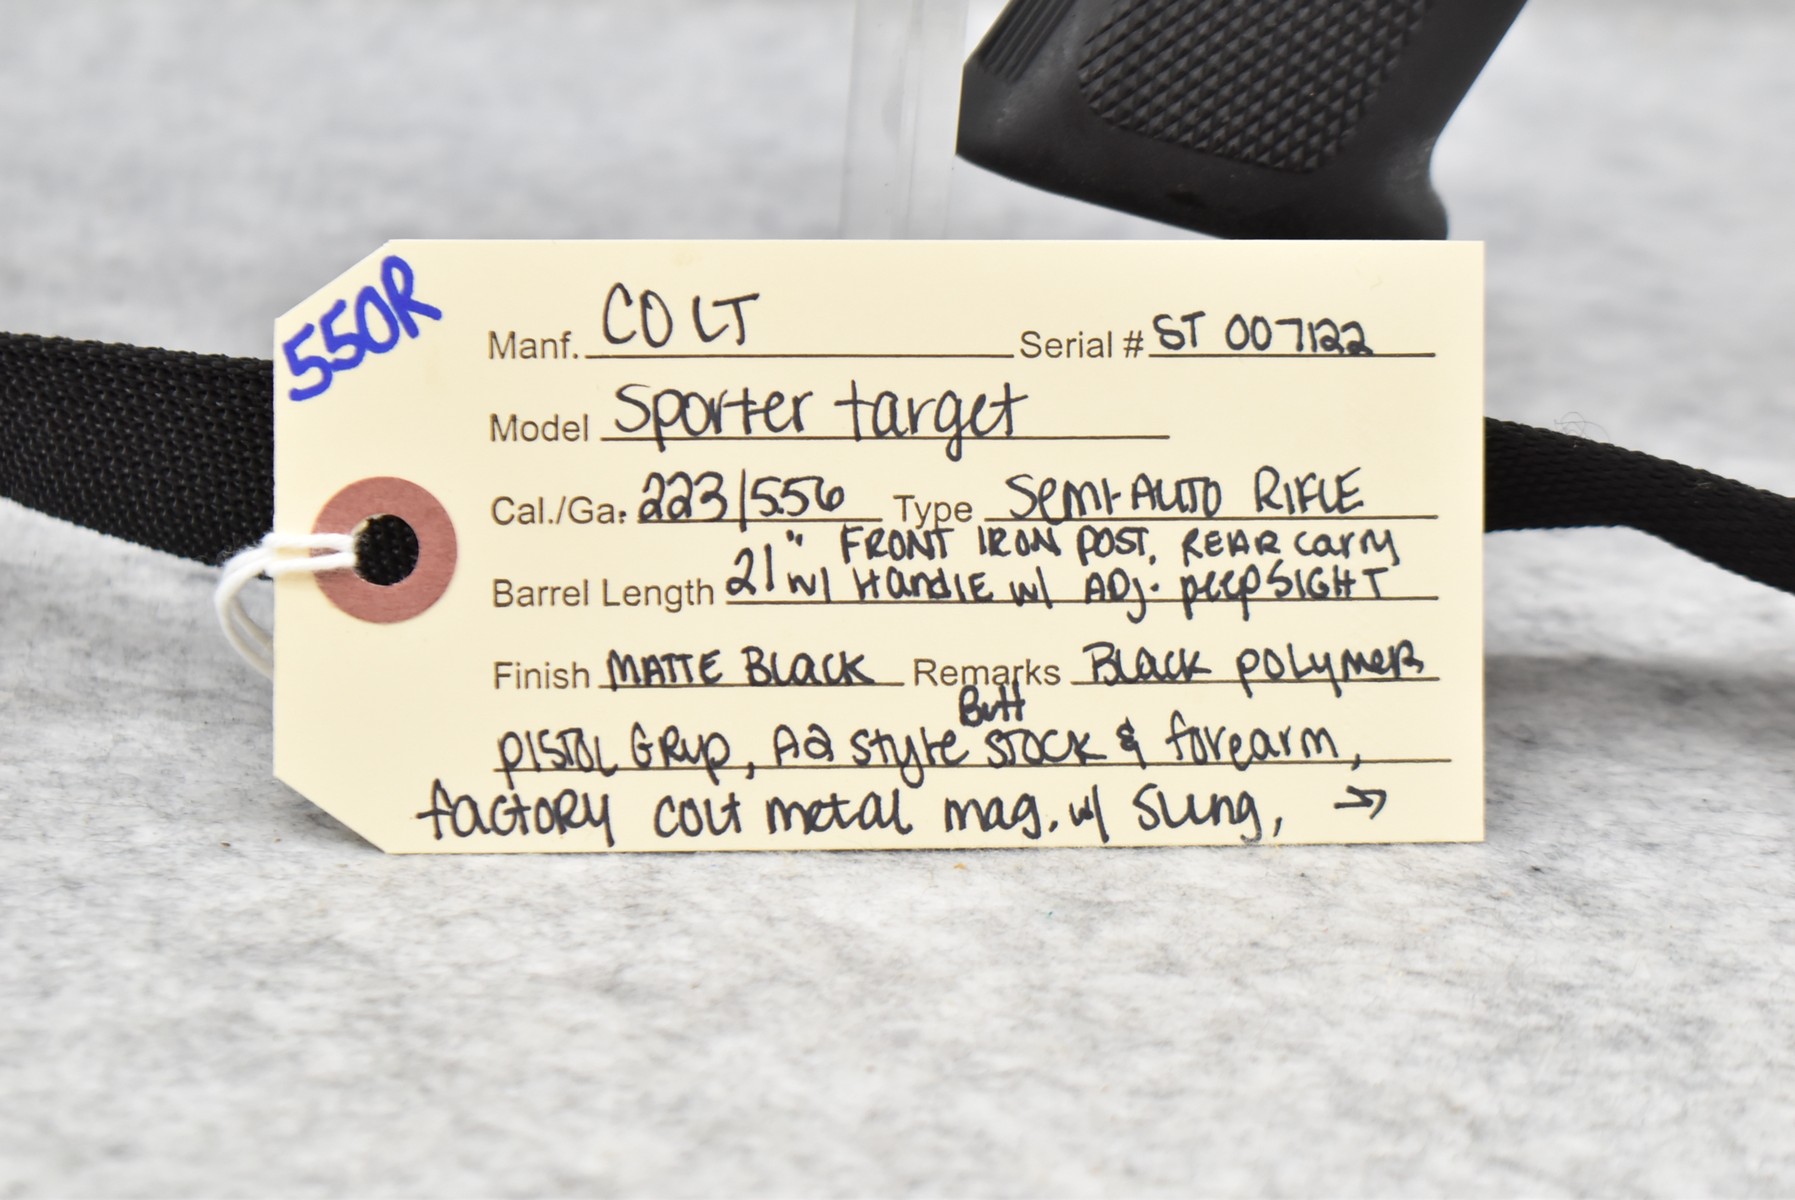 550R
Manf. COLT Serial # ST 007122
Model Sporter target
Cal./Ga. .223/5.56 Type Semi-AUTO RIFLE
FRONT IRON POST, REAR carry
Barrel Length 21" w/ Handle w/ ADj. peep SIGHT
Finish MATTE BLACK Remarks Black polymer
Butt
PISTOL GRIP, A2 style STOCK & forearm,
factory colt metal mag. w/ Sling, →